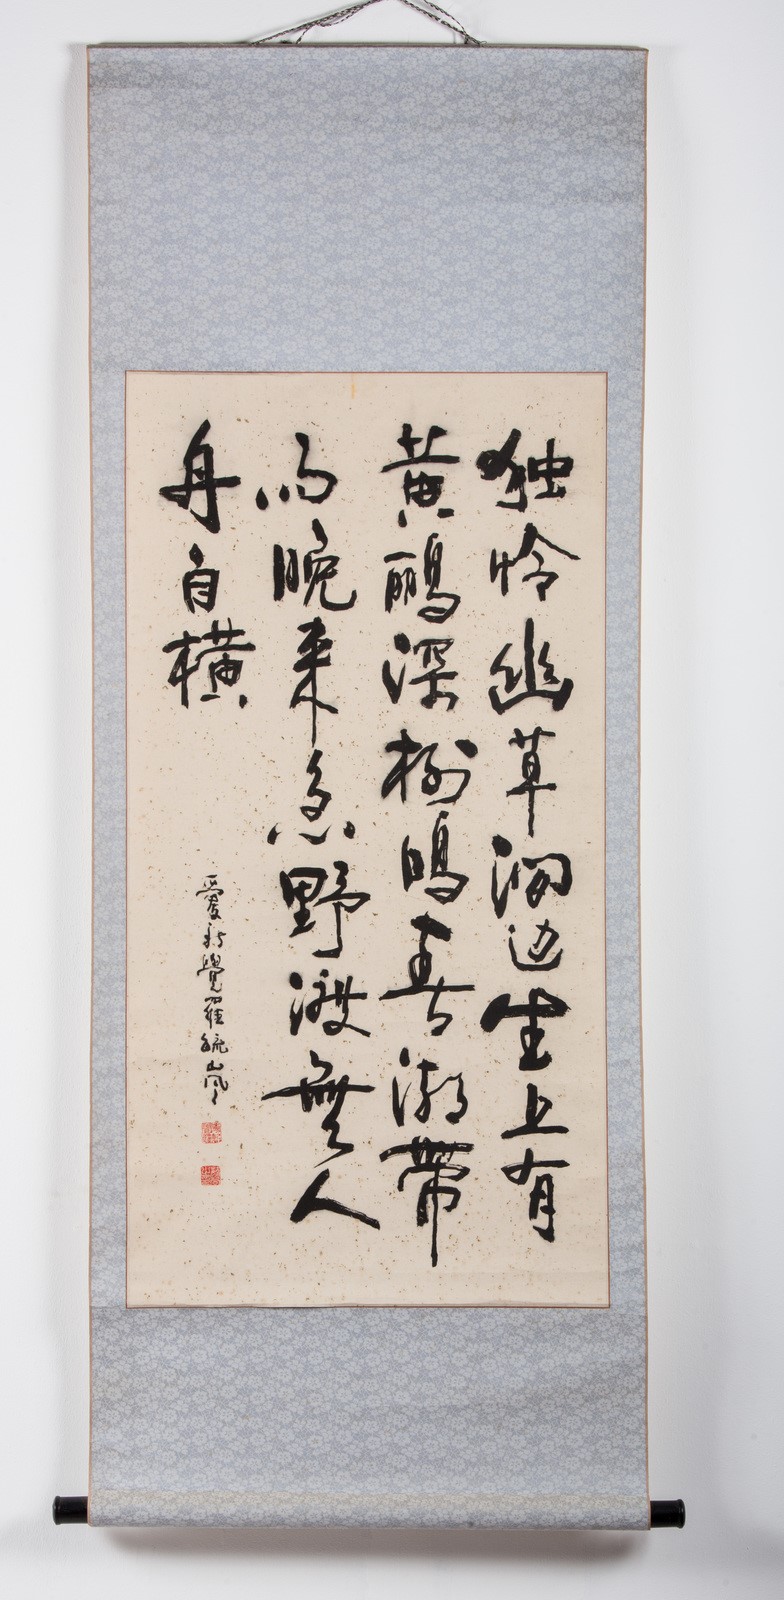 独怜幽草涧边生上有
黄鹂深树鳴春潮带
雨晚来急野渡無人
舟自横
愛新覺羅毓嵐